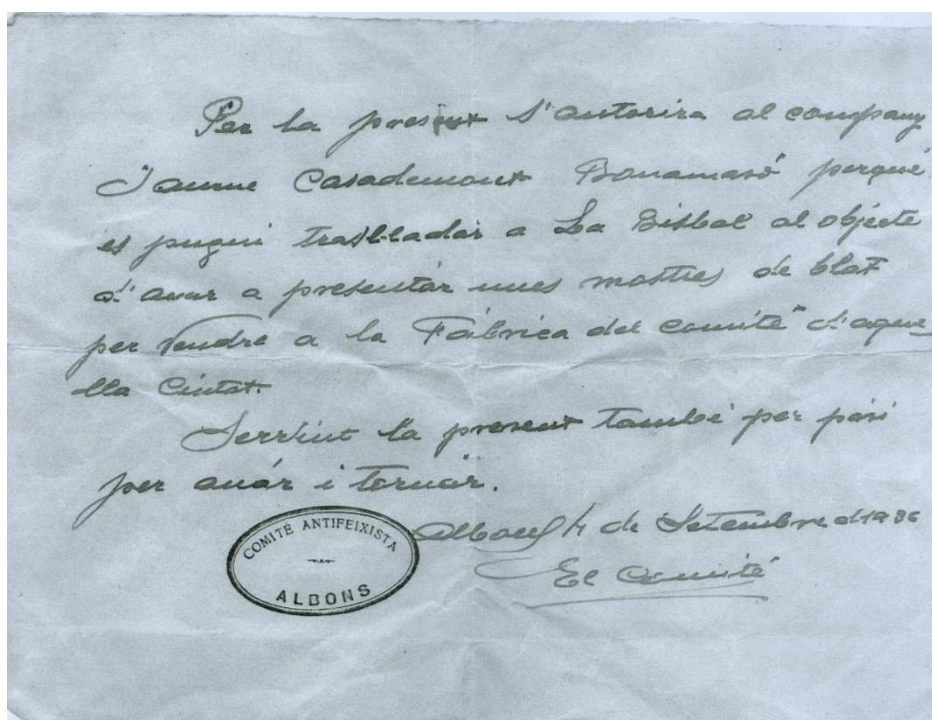 Per la present s'autoriza al company
Jaume Casademont Bonamasó perqué
es pugui trasl-ladar a La Bisbal al objecte
d'anar a presentár unes mostres de blat
per vendre a la Fábrica del comité d'aque
lla Ciutat.
Servint la present també per pasi
per anár i tornár.
Albons 4 de Setembre d1936
El Comité
COMITÈ ANTIFEIXISTA
ALBONS